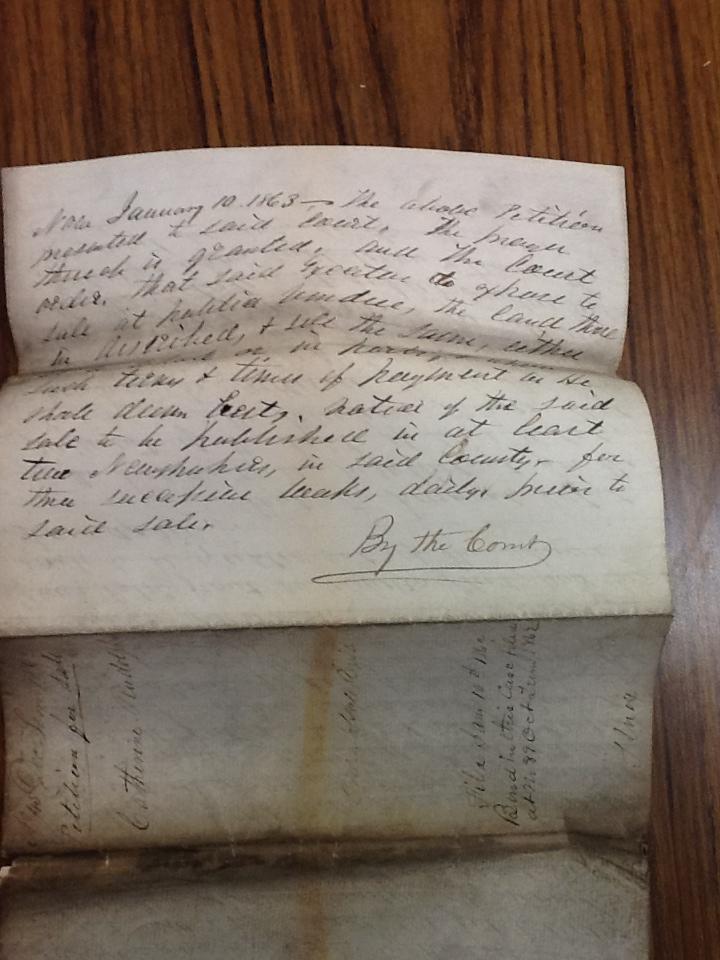 Now January 10. 1863 — The above Petition
presented to said Court, The prayer
thereof is granted, and The Court
order. that said Executor to expose to
sale at public vendue, the land there
in described, & sell the same, either
or in
such terms & times of payment as he
shall deem best, notice of the said
sale to be published in at least
two Newspapers, in said County, for
three successive weeks, prior to
said sale.
By the Court
Petition for Sale
Catherine
File Jan 10th 186
Bond in this Case filed
at No 89 Oct Term 1862